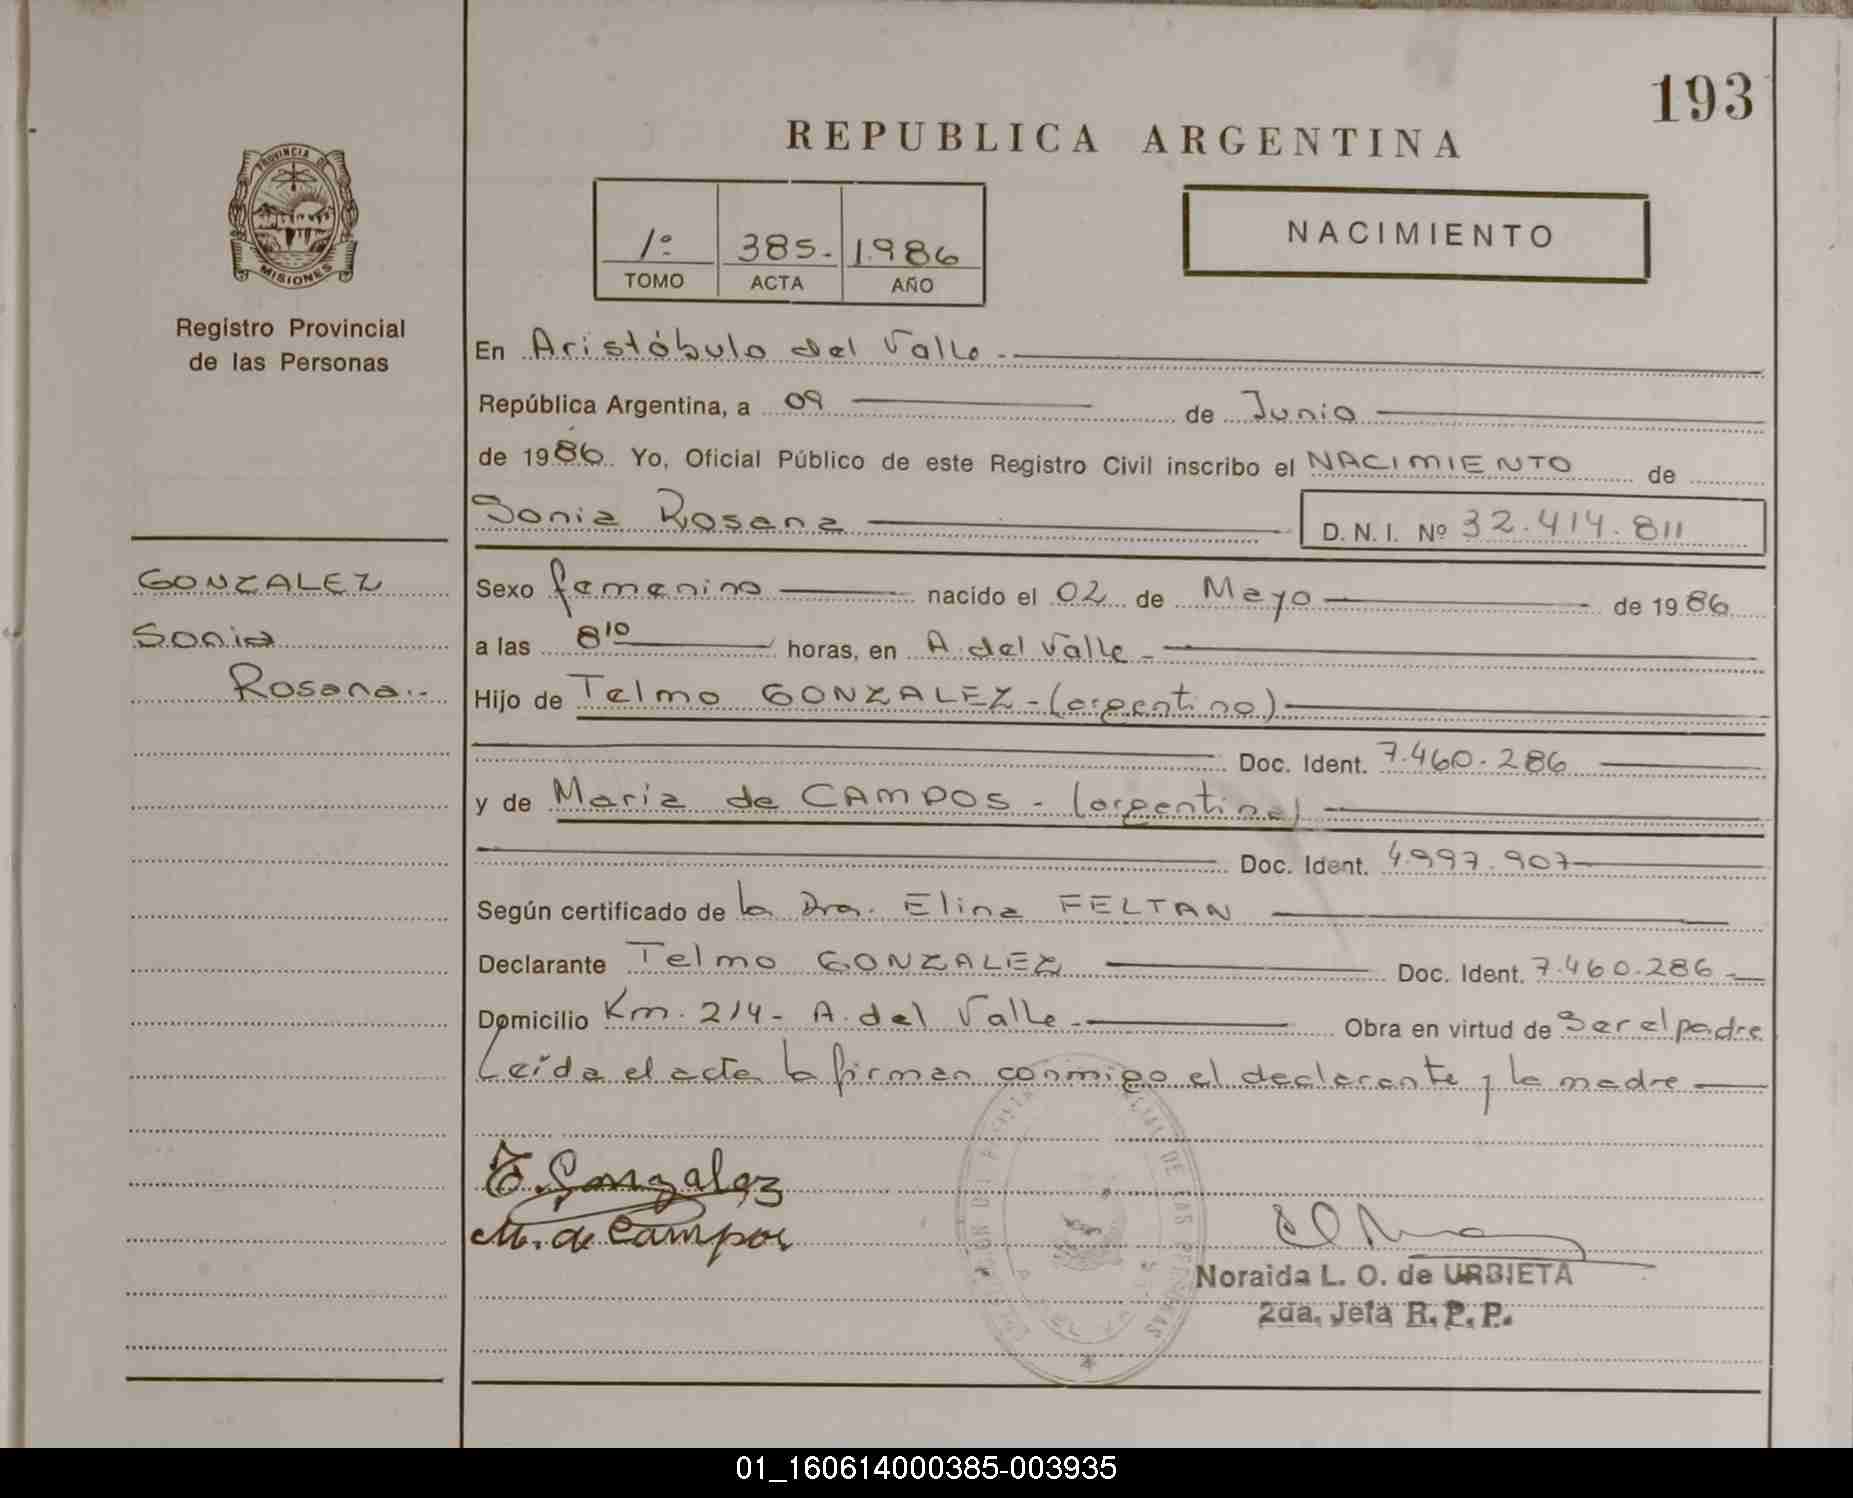 193
REPUBLICA ARGENTINA
PROVINCIA DE
MISIONES
Registro Provincial
de las Personas
1º 385- 1.986
TOMO ACTA AÑO
NACIMIENTO
En Aristóbulo del Valle -
República Argentina, a 09 de Junio
de 1986 Yo, Oficial Público de este Registro Civil inscribo el NACIMIENTO de
Sonia Rosana D. N. I. Nº 32.414.811
GONZALEZ
Sonia
Rosana.-
Sexo femenino nacido el 02 de Mayo de 1986
a las 8¹⁰ horas, en A. del Valle -
Hijo de Telmo GONZALEZ - (argentino)
Doc. Ident. 7.460.286
y de Maria de CAMPOS - (argentina)
Doc. Ident. 4.997.907
Según certificado de la Dra. Elina FELTAN
Declarante Telmo GONZALEZ Doc. Ident. 7.460.286 -
Domicilio Km. 214 - A. del Valle - Obra en virtud de Ser el padre
Leída el acta la firman conmigo el declarante y la madre
T. Gonzalez
M. de Campos
Noraida L. O. de URBIETA
2da. Jefa R. P. P.
01_160614000385-003935